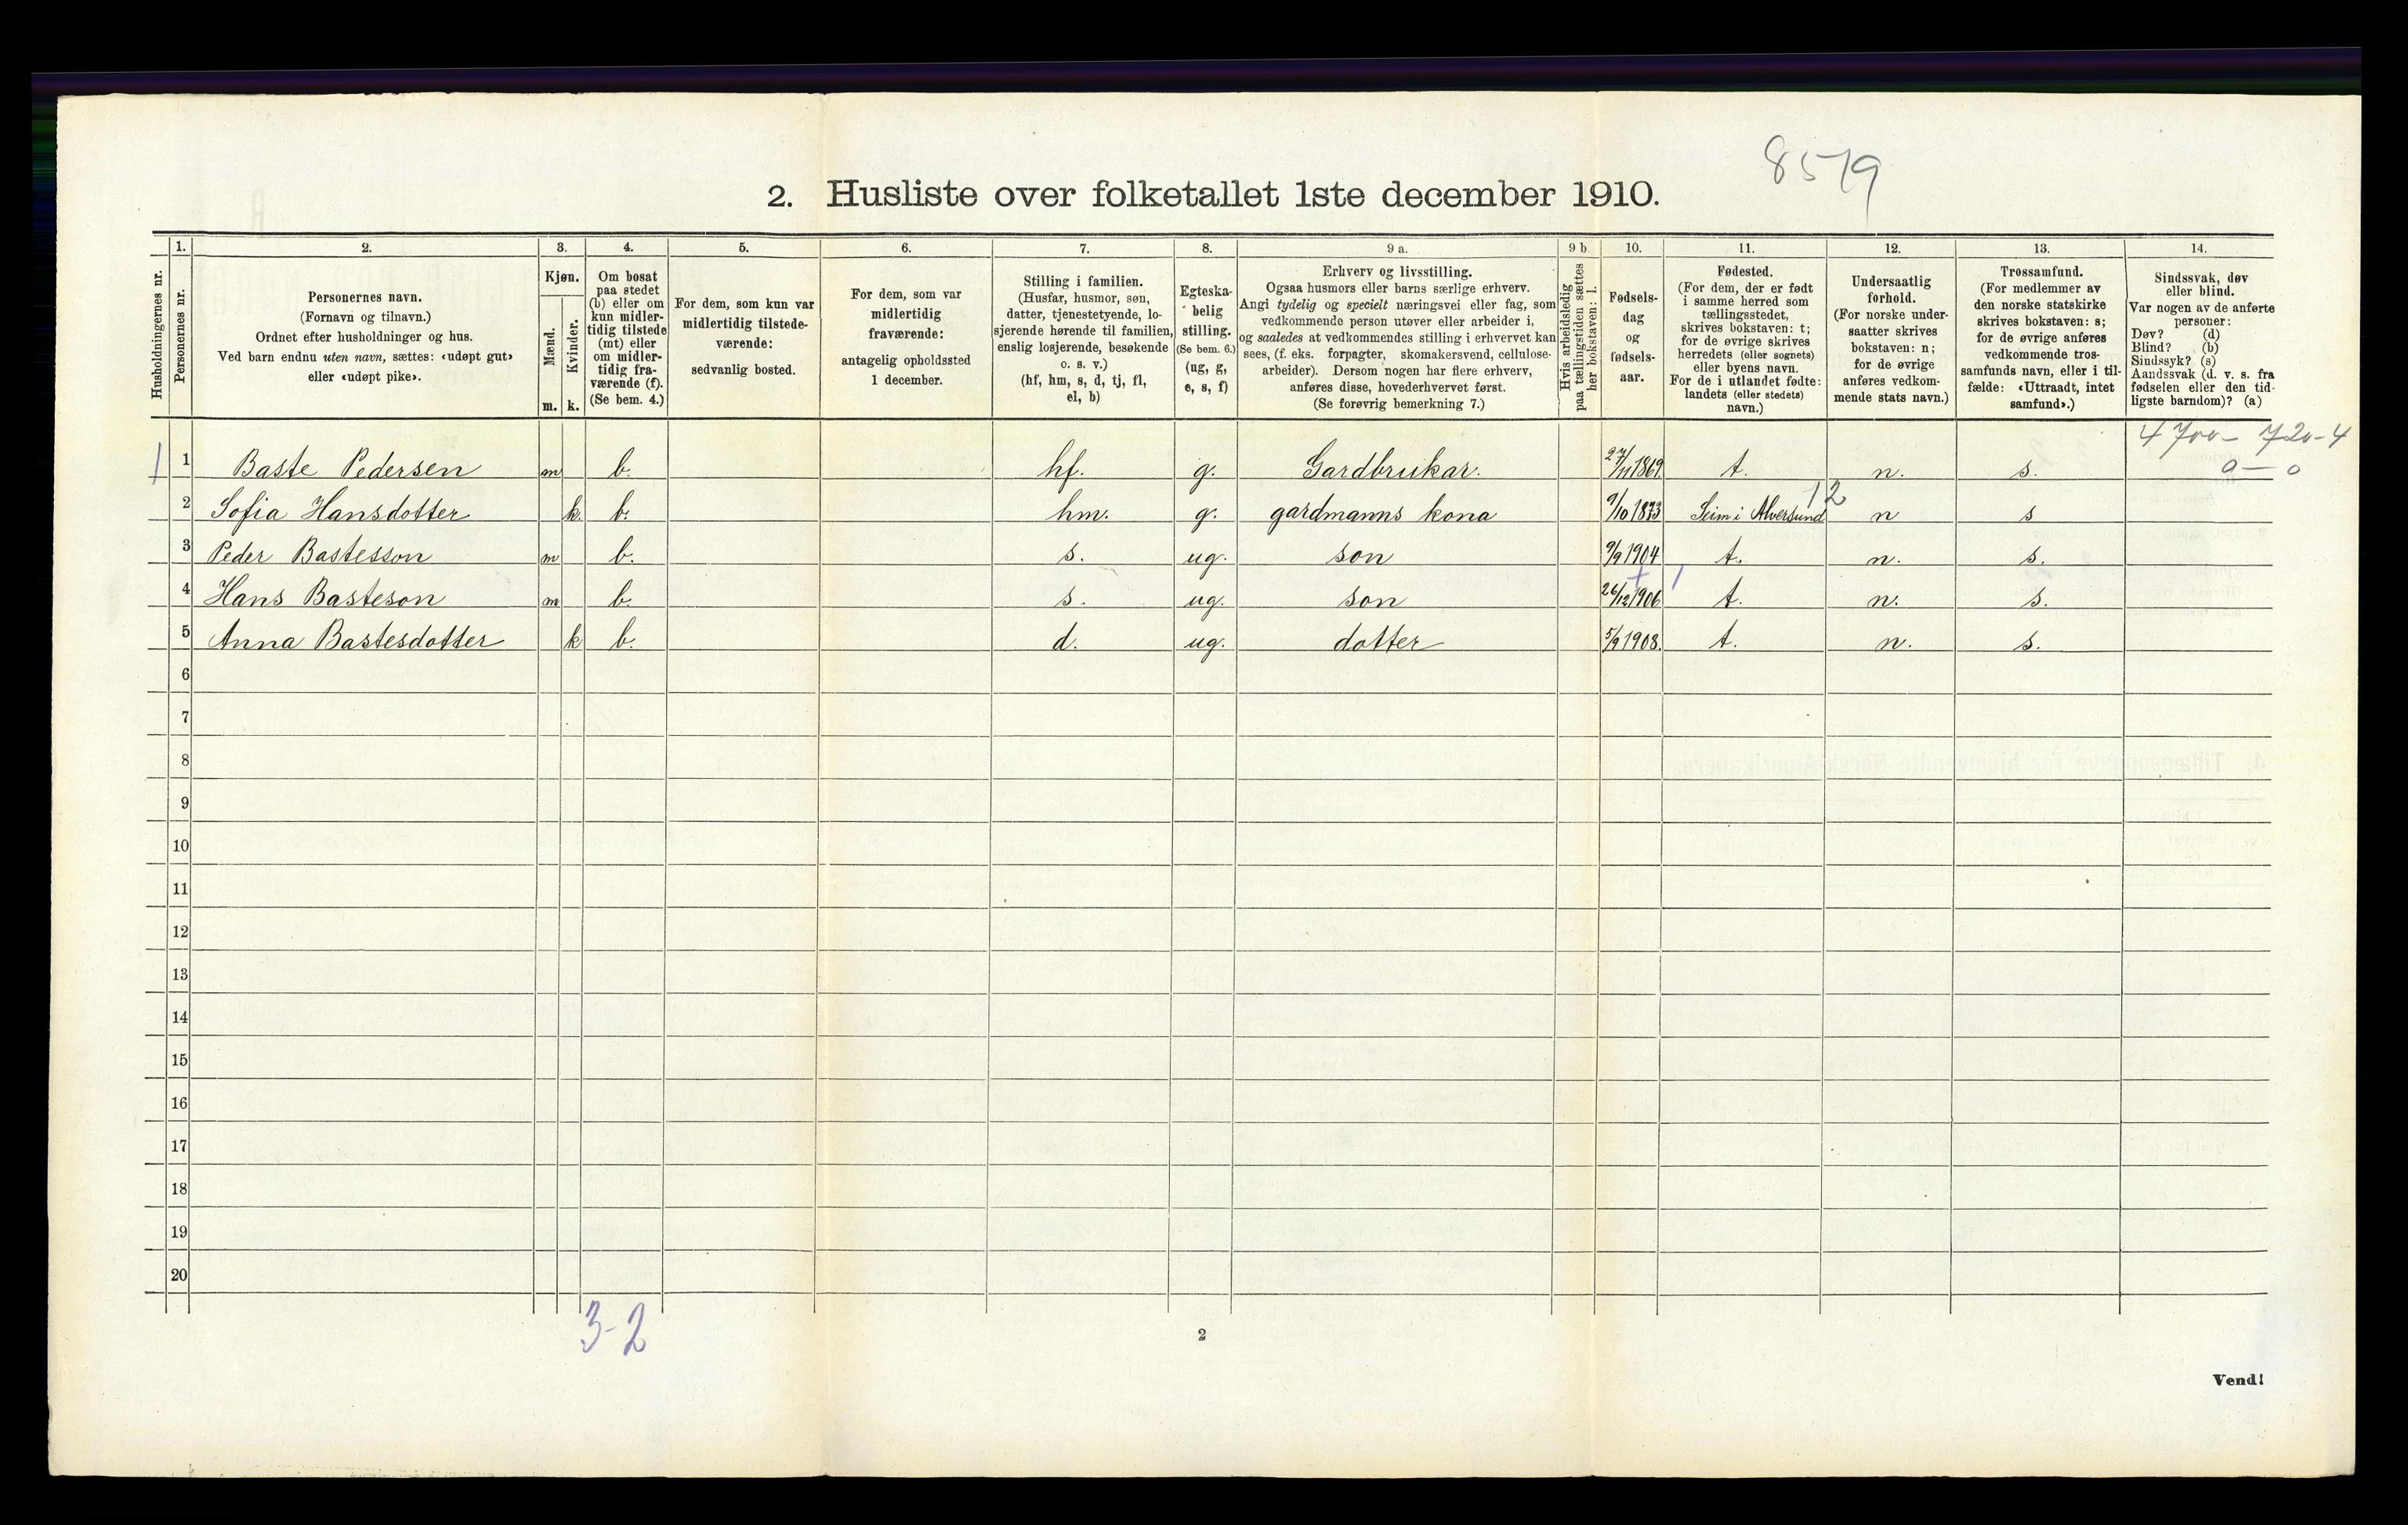 8579
2. Husliste over folketallet 1ste december 1910.
Husholdningernes nr.
1.
Personernes nr.
2.
Personernes navn.
(Fornavn og tilnavn.)
Ordnet efter husholdninger og hus.
Ved barn endnu uten navn, sættes: «udøpt gut»
eller «udøpt pike».
3.
Kjøn.
Mænd.
Kvinder.
m. k.
4.
Om bosat
paa stedet
(b) eller om
kun midler-
tidig tilstede
(mt) eller
om midler-
tidig fra-
værende (f).
(Se bem. 4.)
5.
For dem, som kun var
midlertidig tilstede-
værende:
sedvanlig bosted.
6.
For dem, som var
midlertidig
fraværende:
antagelig opholdssted
1 december.
7.
Stilling i familien.
(Husfar, husmor, søn,
datter, tjenestetyende, lo-
sjerende hørende til familien,
enslig losjerende, besøkende
o. s. v.)
(hf, hm, s, d, tj, fl,
el, b)
8.
Egteska-
belig
stilling.
(Se bem. 6.)
(ug, g,
e, s, f)
9 a.
Erhverv og livsstilling.
Ogsaa husmors eller barns særlige erhverv.
Angi tydelig og specielt næringsvei eller fag, som
vedkommende person utøver eller arbeider i,
og saaledes at vedkommendes stilling i erhvervet kan
sees, (f. eks. forpagter, skomakersvend, cellulose-
arbeider). Dersom nogen har flere erhverv,
anføres disse, hovederhvervet først.
(Se forøvrig bemerkning 7.)
9 b.
Hvis arbeidsledig
paa tællingstiden sættes
her bokstaven: l.
10.
Fødsels-
dag
og
fødsels-
aar.
11.
Fødested.
(For dem, der er født
i samme herred som
tællingsstedet,
skrives bokstaven: t;
for de øvrige skrives
herredets (eller sognets)
eller byens navn.
For de i utlandet fødte:
landets (eller stedets)
navn.)
12.
Undersaatlig
forhold.
(For norske under-
saatter skrives
bokstaven: n;
for de øvrige
anføres vedkom-
mende stats navn.)
13.
Trossamfund.
(For medlemmer av
den norske statskirke
skrives bokstaven: s;
for de øvrige anføres
vedkommende tros-
samfunds navn, eller i til-
fælde: «Uttraadt, intet
samfund».)
14.
Sindssvak, døv
eller blind.
Var nogen av de anførte
personer:
Døv? (d)
Blind? (b)
Sindssyk? (s)
Aandssvak (d. v. s. fra
fødselen eller den tid-
ligste barndom)? (a)
4700 - 720-4
0 - 0
1 1 Baste Pedersen m b. hf. g. Gardbrukar. 27/11 1869. t. n. s.
12
2 Sofia Hansdotter k. b. hm. g. gardmanns kona 9/10 1873 Seim i Alversund n s
3 Peder Bastesson m b. s. ug. son 9/9 1904 t. n. s.
4 Hans Basteson m b. s. ug. son 26/12 1906 t. n. s.
5 Anna Bastesdotter k b. d. ug. dotter 5/9 1908. t. n. s.
6
7
8
9
10
11
12
13
14
15
16
17
18
19
20
3-2
2
Vend!